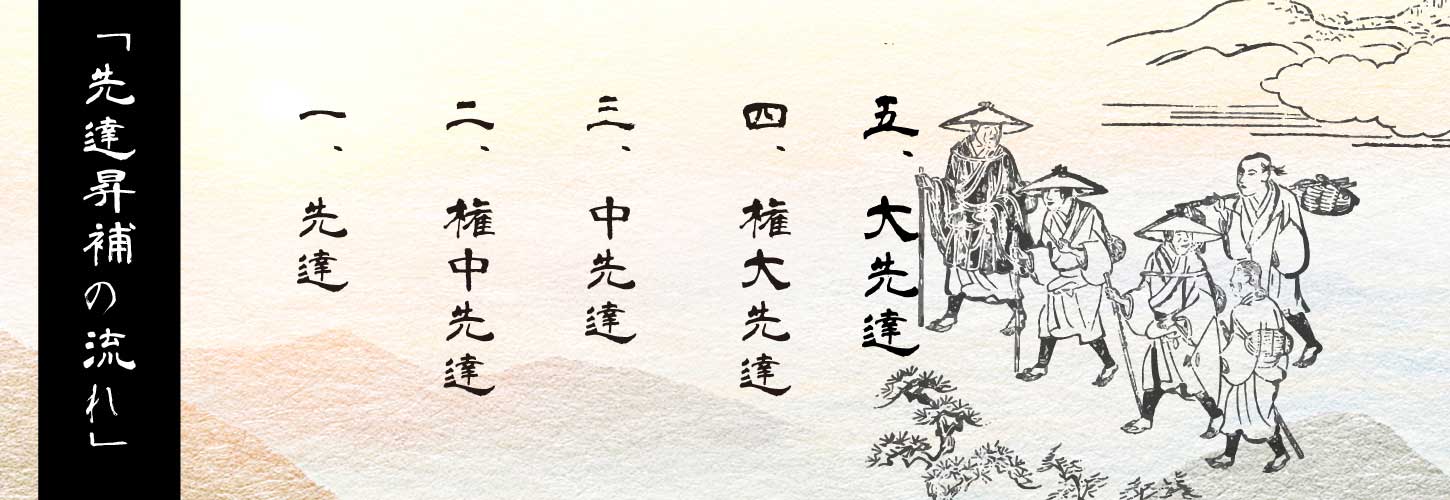 「先達昇補の流れ」
一、先達
二、権中先達
三、中先達
四、権大先達
五、大先達